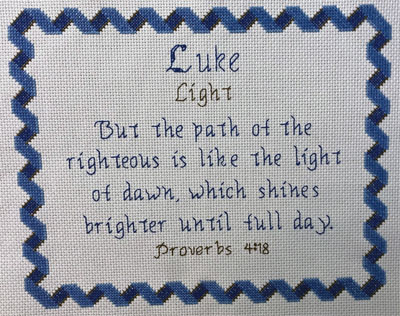 Luke
Light
But the path of the
righteous is like the light
of dawn, which shines
brighter until full day.
Proverbs 4:18